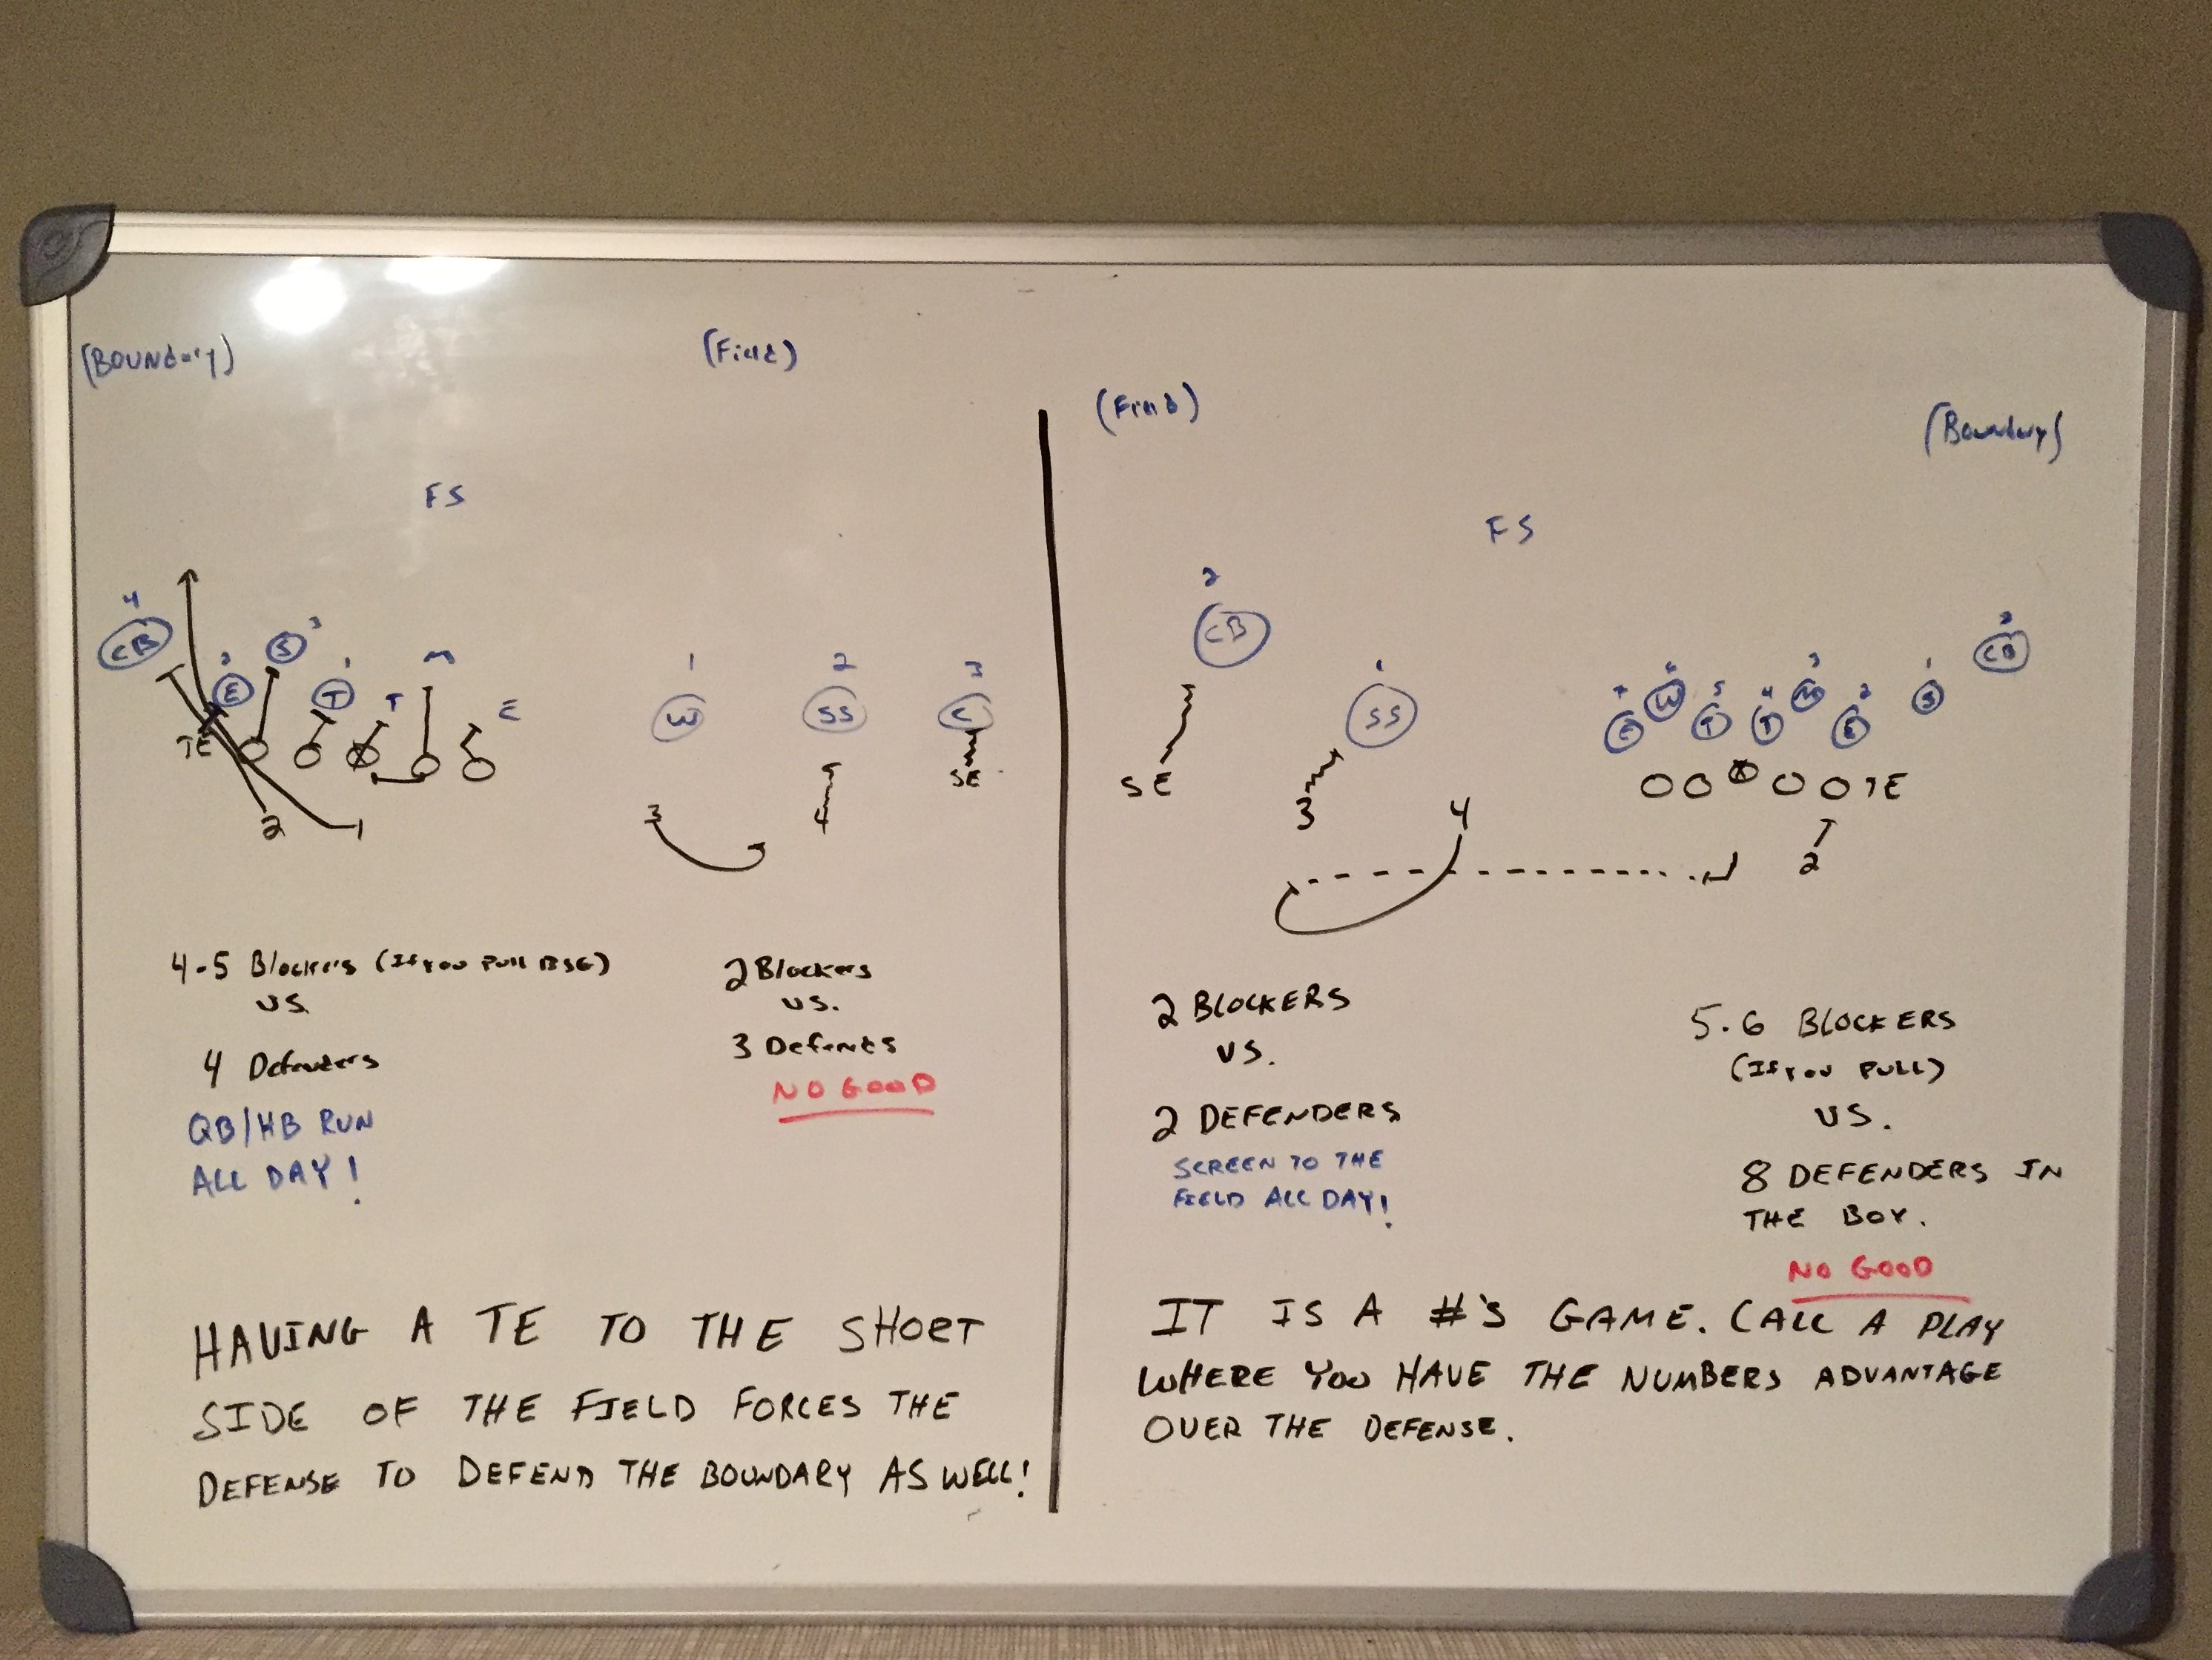 (Boundary)
(Field)
FS
4
CB
2
E
S
3
1
T
T
M
E
TE
2
1
1
W
2
SS
3
C
3
4
SE
4-5 Blockers (If you Pull BSG)
VS
4 Defenders
QB/HB RUN
ALL DAY!
2 Blockers
VS.
3 Defends
NO GOOD
HAVING A TE TO THE SHORT
SIDE OF THE FIELD FORCES THE
DEFENSE TO DEFEND THE BOUNDARY AS WELL!
(Field)
(Boundary)
FS
2
CB
1
SS
SE
3
4
W
5
T
4
T
3
M
2
E
1
S
CB
TE
2
2 BLOCKERS
VS.
2 DEFENDERS
SCREEN TO THE
FIELD ALL DAY!
5-6 BLOCKERS
(If you PULL)
VS.
8 DEFENDERS IN
THE BOX.
NO GOOD
IT IS A #'S GAME. CALL A PLAY
WHERE YOU HAVE THE NUMBERS ADVANTAGE
OVER THE DEFENSE.